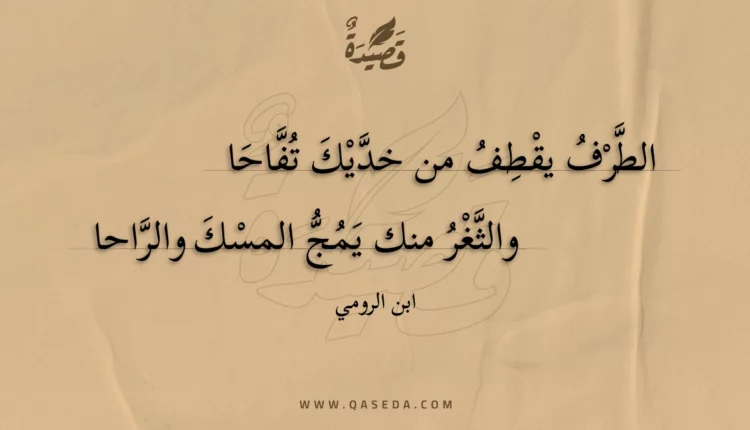 قَصِيْدَةٌ
الطَّرْفُ يقْطِفُ من خدَّيْكَ تُفَّاحَا
والثَّغْرُ منك يَمُجُّ المسْكَ والرَّاحا
ابن الرومي
WWW.QASEDA.COM